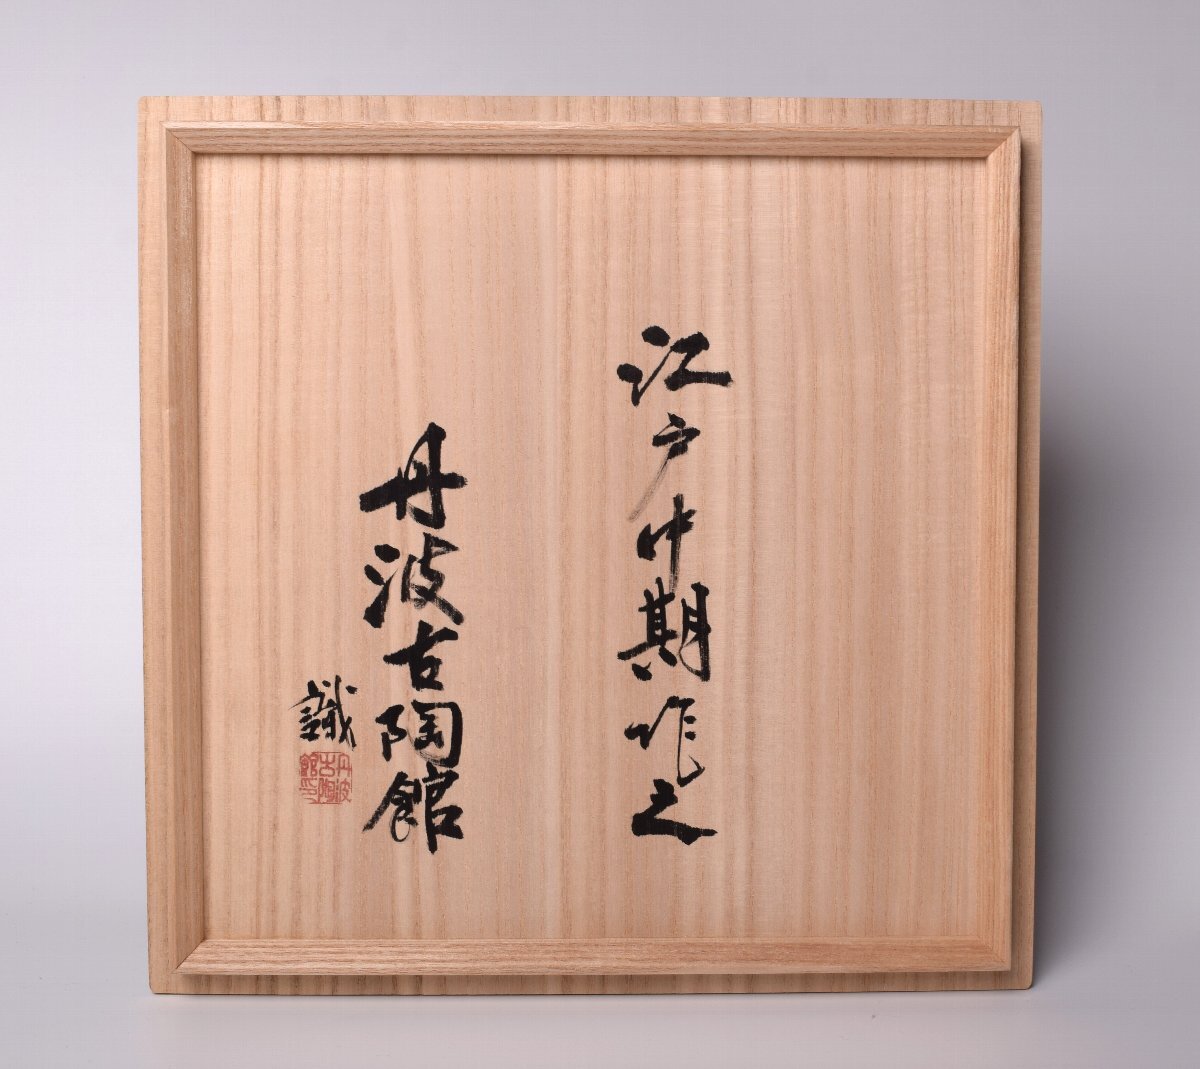 江戸中期作之
丹波古陶館
識
丹波古陶館印